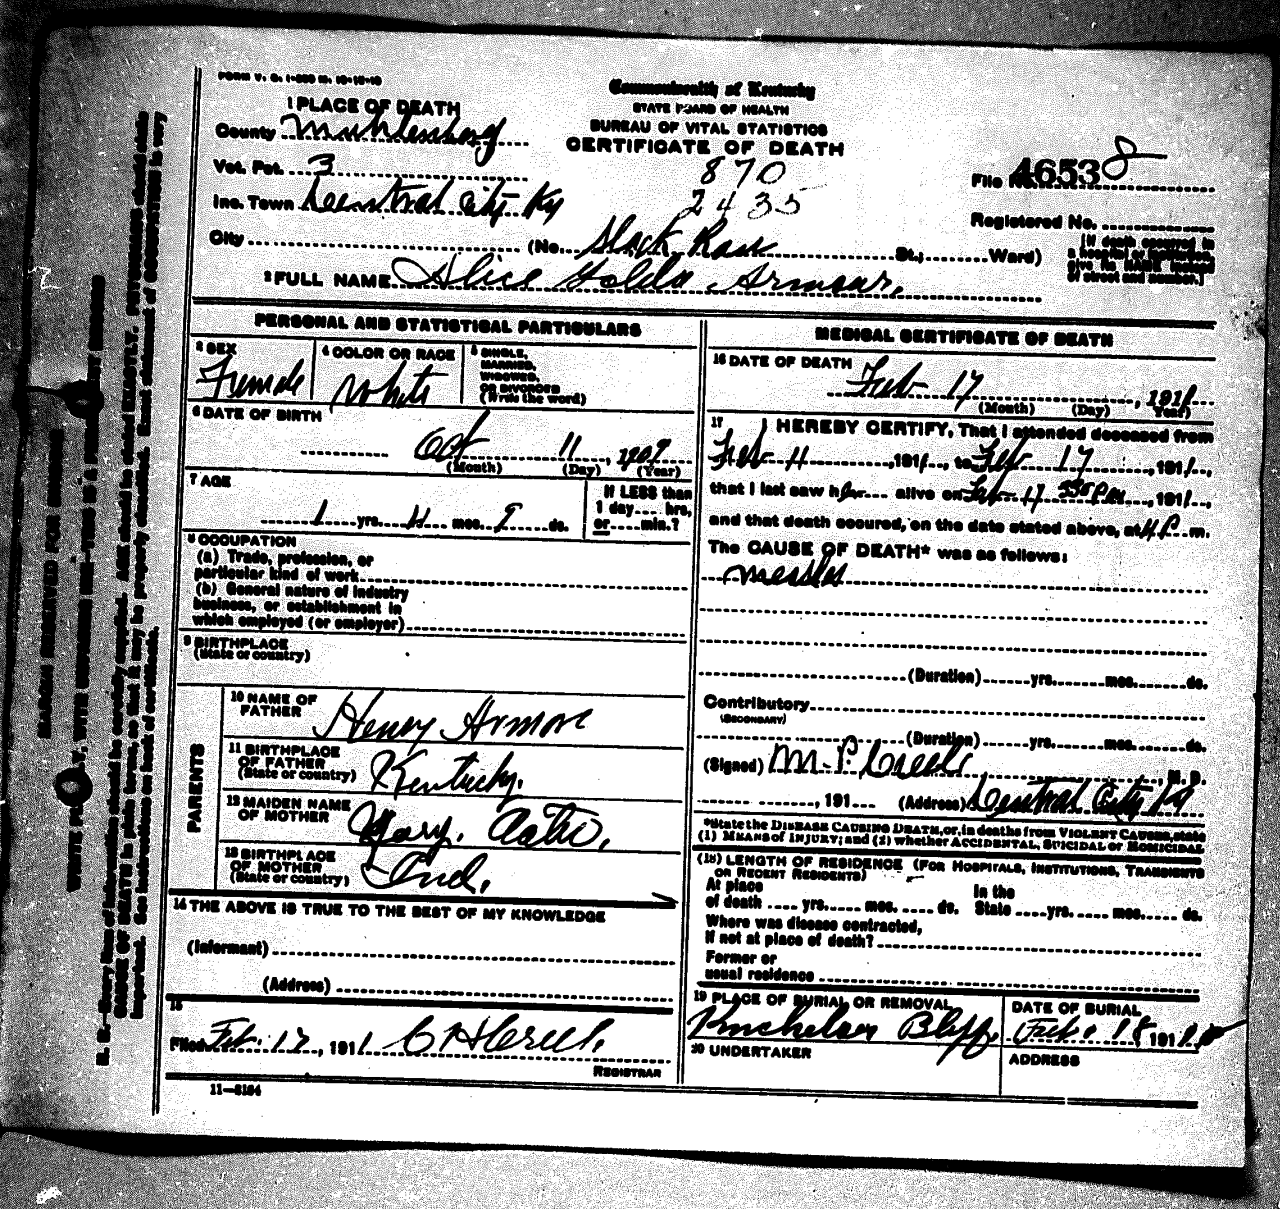 FORM V. S. 1-
Commonwealth of Kentucky
STATE BOARD OF HEALTH
BUREAU OF VITAL STATISTICS
CERTIFICATE OF DEATH
1 PLACE OF DEATH
County Muhlenberg
Vot. Pct. 3
870
File No. 46538
Inc. Town Central City Ky
2435
Registered No.
City (No. St.; Ward)
[If death occurred in a Hospital or Institution, give its NAME instead of street and number.]
2 FULL NAME Alice Golda Armour.
PERSONAL AND STATISTICAL PARTICULARS
3 SEX
Female
4 COLOR OR RACE
White
5 SINGLE, MARRIED, WIDOWED, OR DIVORCED (Write the word)
6 DATE OF BIRTH
Oct 11, 1909
(Month) (Day) (Year)
7 AGE
1 yrs. 4 mos. 9 ds.
If LESS than 1 day.... hrs, or.....min.?
8 OCCUPATION
(a) Trade, profession, or
particular kind of work
(b) General nature of industry
business, or establishment in
which employed (or employer)
9 BIRTHPLACE
(State or country)
PARENTS
10 NAME OF FATHER
Henry Armore
11 BIRTHPLACE OF FATHER (State or country)
Kentucky.
12 MAIDEN NAME OF MOTHER
Mary.
13 BIRTHPLACE OF MOTHER (State or country)
Ind.
14 THE ABOVE IS TRUE TO THE BEST OF MY KNOWLEDGE
(Informant)
(Address)
15
Filed Feb. 17, 1911
REGISTRAR
11-3184
MEDICAL CERTIFICATE OF DEATH
16 DATE OF DEATH
Feb 17, 1911
(Month) (Day) (Year)
17 I HEREBY CERTIFY, That I attended deceased from
Feb 11, 1911, to Feb 17, 1911,
that I last saw her alive on Feb 17, 1911,
and that death occured, on the date stated above, at 4 P. m.
The CAUSE OF DEATH* was as follows:
Measles
(Duration) yrs. mos. ds.
Contributory
(SECONDARY)
(Duration) yrs. mos. ds.
(Signed) M. P. Creel, M. D.
, 191 (Address) Central City Ky
*State the DISEASE CAUSING DEATH, or, in deaths from VIOLENT CAUSES, state
(1) MEANS of INJURY; and (2) whether ACCIDENTAL, SUICIDAL or HOMICIDAL
(18) LENGTH OF RESIDENCE (FOR HOSPITALS, INSTITUTIONS, TRANSIENTS
OR RECENT RESIDENTS)
At place of death .... yrs..... mos. .... ds. In the State .... yrs. .... mos..... ds.
Where was disease contracted,
if not at place of death?
Former or
usual residence
19 PLACE OF BURIAL OR REMOVAL
DATE OF BURIAL
Feb. 18 1911
20 UNDERTAKER
ADDRESS
MARGIN RESERVED FOR BINDING
WRITE PLAINLY, WITH UNFADING INK—THIS IS A PERMANENT RECORD
N. B.—Every item of information should be carefully supplied. AGE should be stated EXACTLY. PHYSICIANS should state
CAUSE OF DEATH in plain terms, so that it may be properly classified. Exact statement of OCCUPATION is very
important. See instructions on back of certificate.